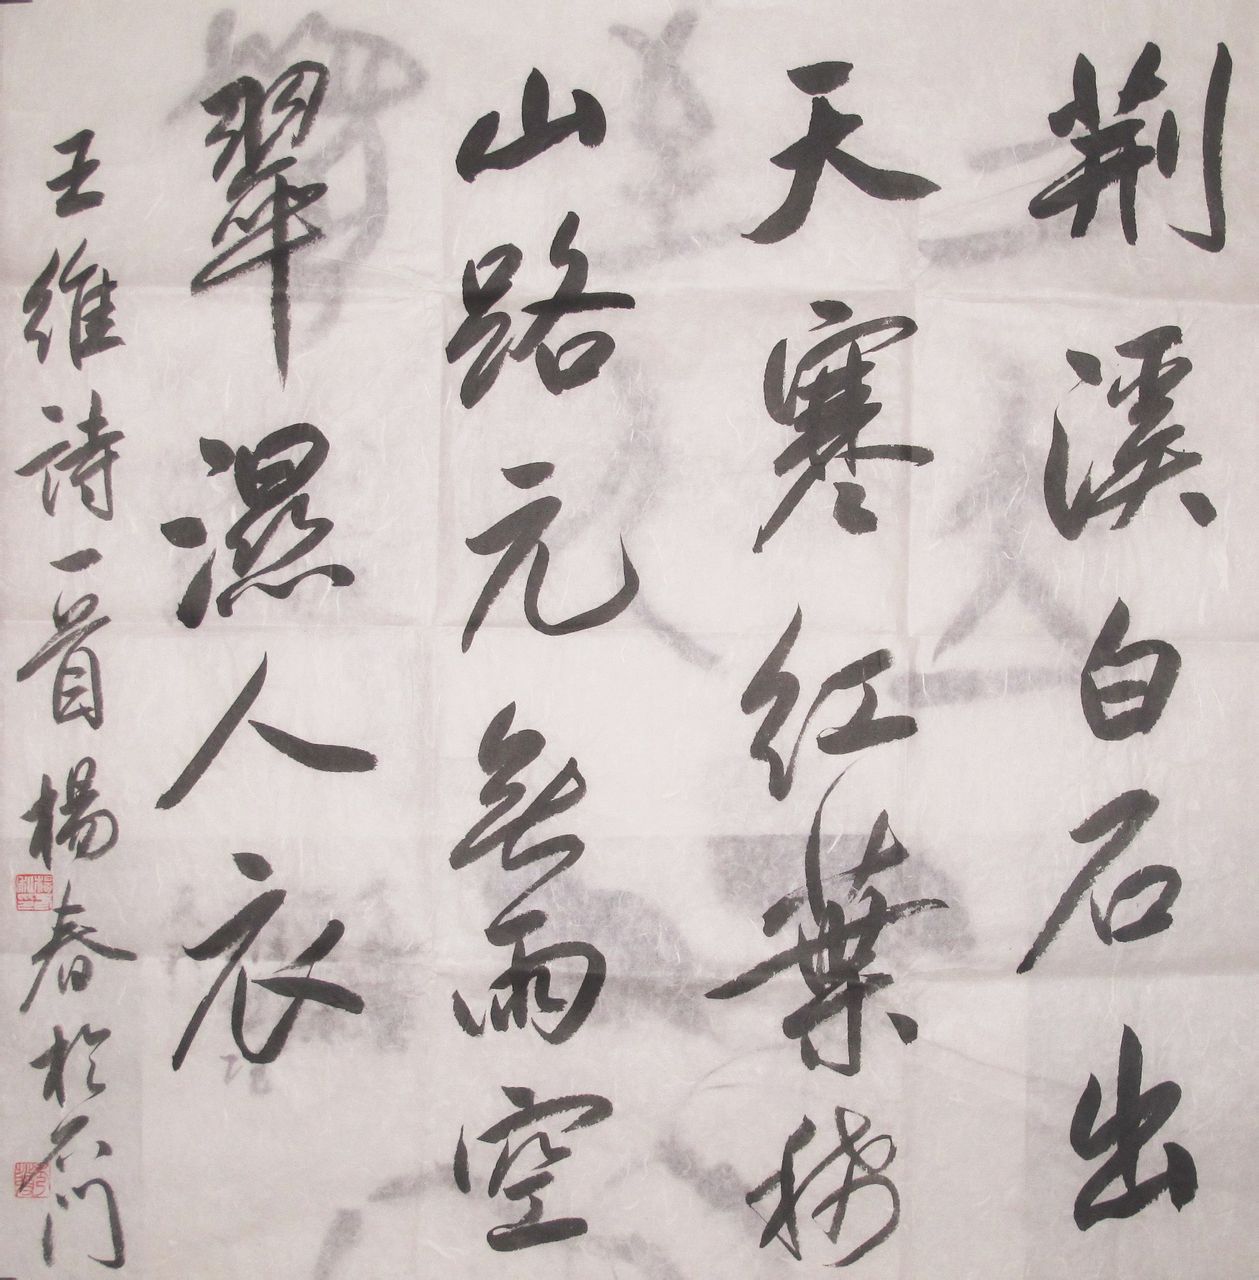 荆溪白石出
天寒紅葉稀
山路元無雨空
翠濕人衣
王維詩一首楊春於石門